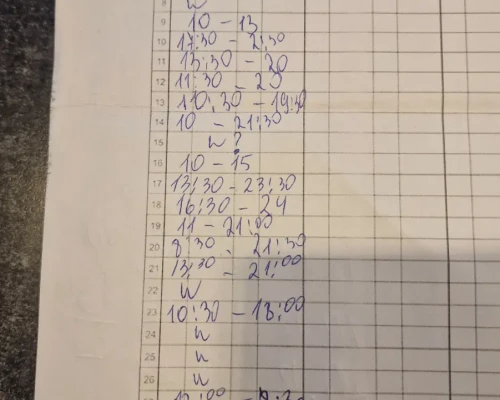 8 w
9 10 - 13
10 17:30 - 2:30
11 13:30 - 20
12 11:30 - 20
13 10:30 - 19:30
14 10 - 21:30
15 w?
16 10 - 15
17 13:30 - 23:30
18 16:30 - 24
19 11 - 21:00
20 8:30 - 21:30
21 13:30 - 21:00
22 W
23 10:30 - 18:00
24 w
25 w
26 w